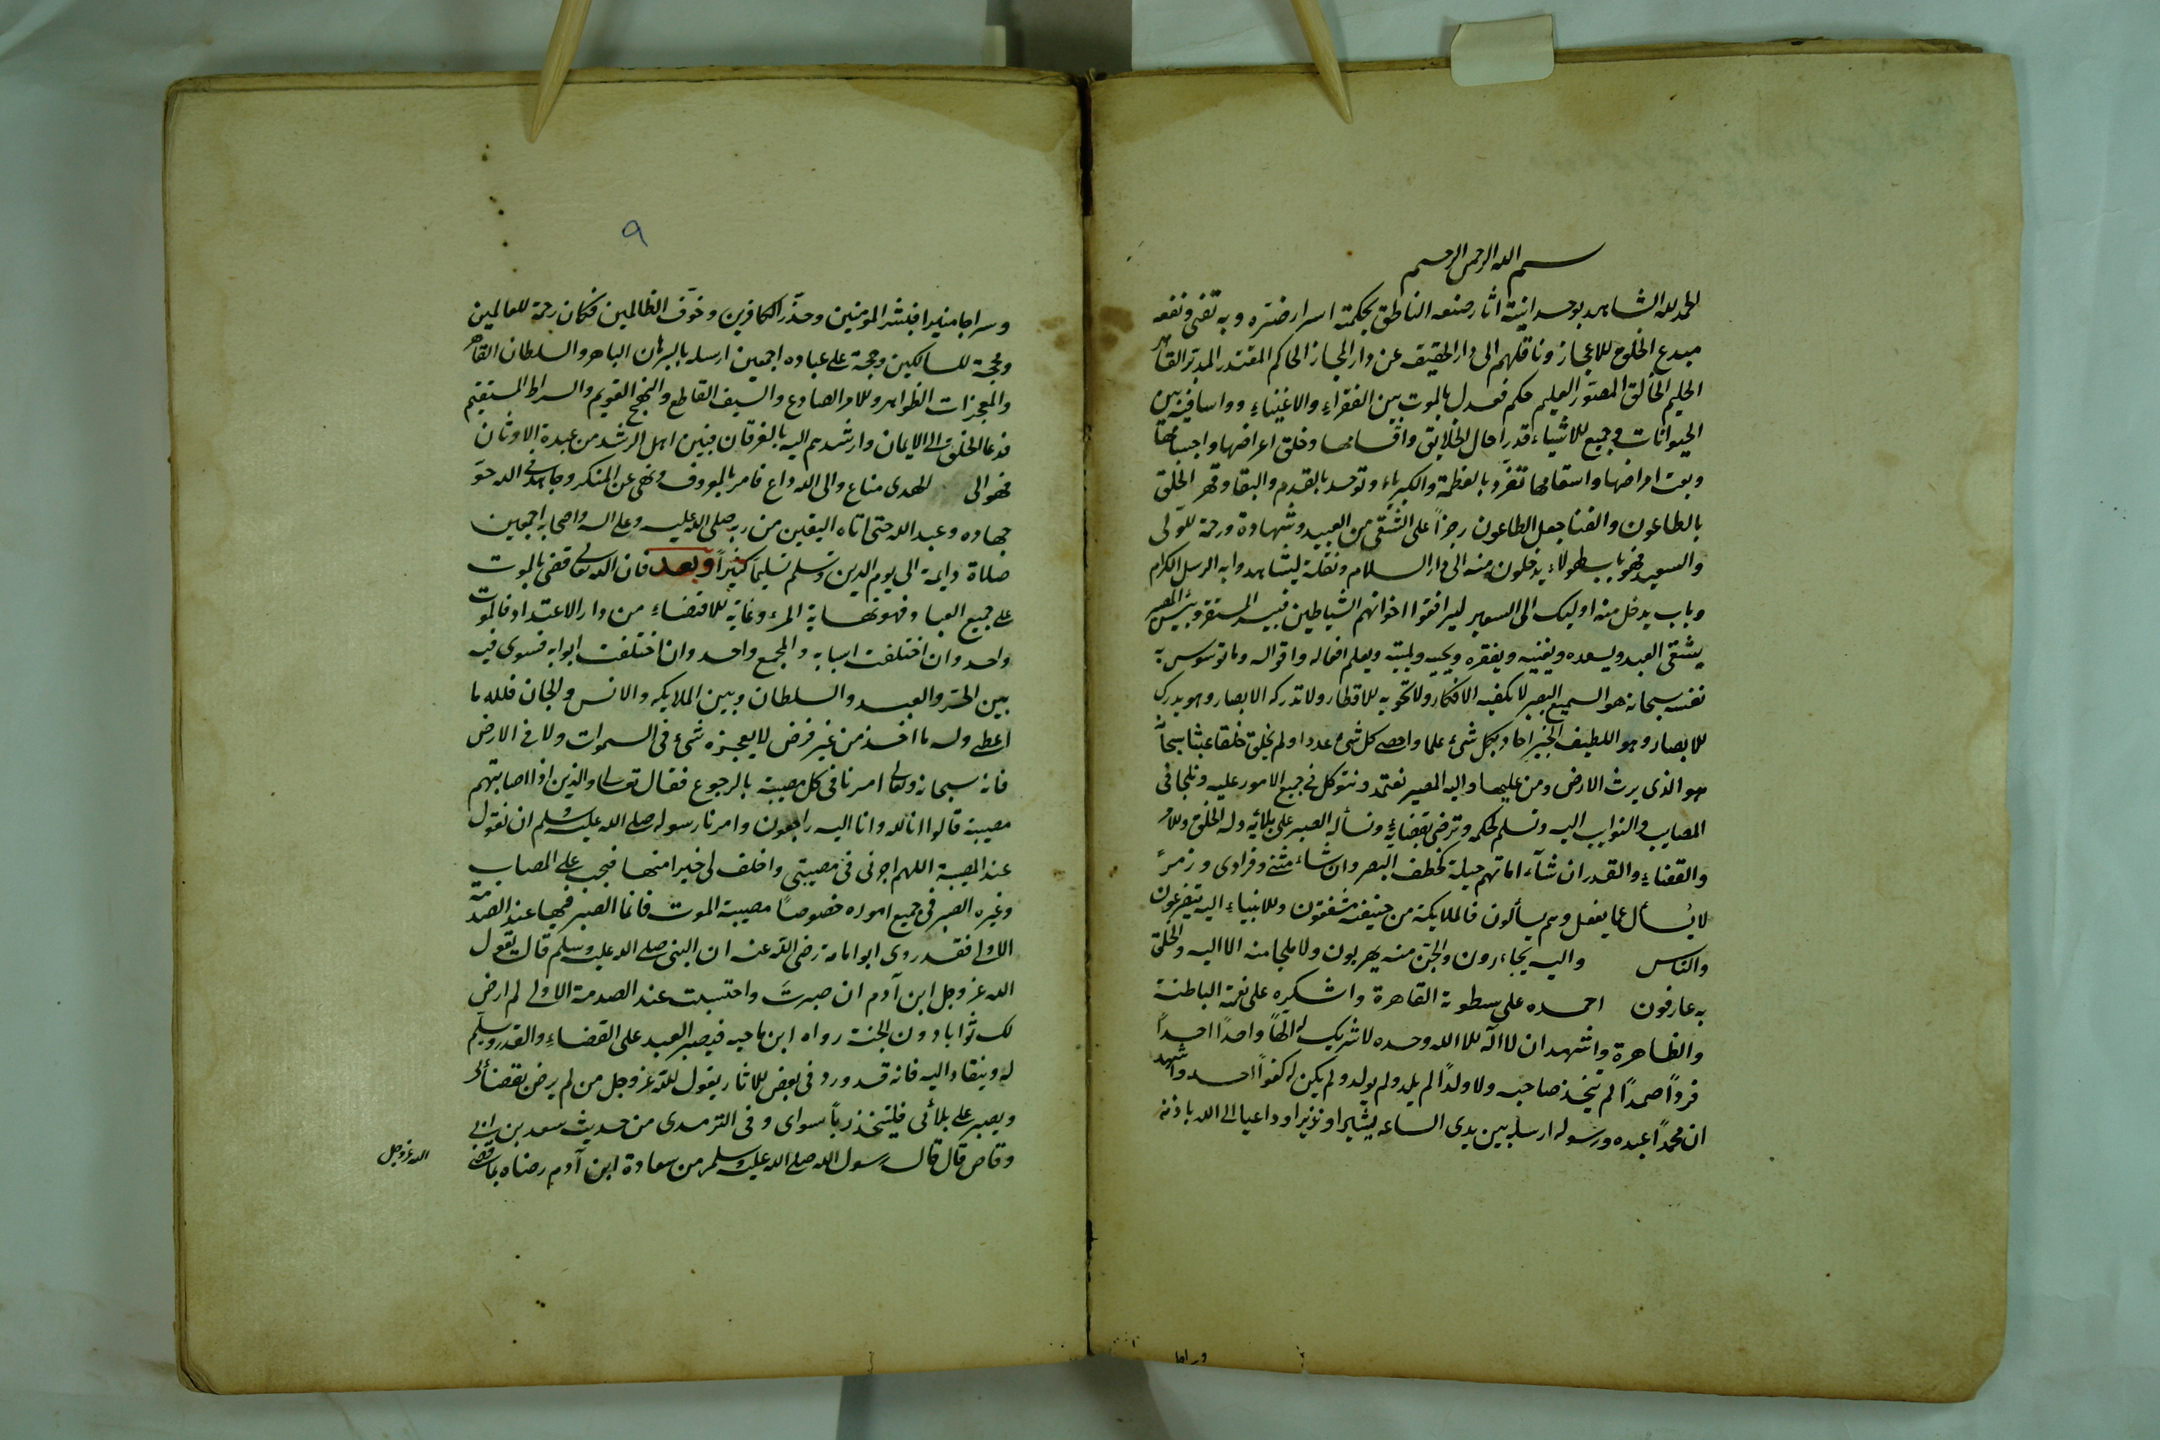 بسم الله الرحمن الرحيم
الحمد لله الشاهد بوحدانيته اثار صنعه الناطق بحكمته اسرار ضره وبه تفنى ونفعه
مبدع الخلوق للاعجاز وناقلهم الى دار الحقيقه عن دار المجاز الحاكم المقتدر المدبر القاهر
الحليم الخالق المصور العليم حكم فعدل بالموت بين الفقراء والاغنياء وواسا فيه بين
الحيوانات وجميع الاشياء قدر اجال الخلايق واقسامها وخلق اعراضها واجسامها
وبعث امراضها واسقامها تفرد بالعظمة والكبرياء وتوحد بالقدم والبقا وقهر الخلق
بالطاعون والفنا جعل الطاعون رجزا على الشقى من العبيد وشهادة ورحمة للولى
والسعيد فهو باب لهولاء يدخلون منه الى دار السلام ونقلة ليشاهدوا به الرسل الكرام
وباب يدخل منه اوليك الى السعير ليرافقوا اخوانهم الشياطين فبيس المستقر وبيس المصير
يشقى العبد ويسعده ويغنيه ويفقره ويحييه ويميته ويعلم افعاله واقواله وما توسوس به
نفسه سبحانه هو السميع البصير لا تكفيه الافكار ولا تحويه الاقطار ولا تدركه الابصار وهو يدرك
الابصار وهو اللطيف الخبير احاط بكل شئ علما واحصى كل شئ عددا ولم يخلق خلقا عبثا سبحانه
هو الذى يرث الارض ومن عليها واليه المصير نعتمد ونتوكل فى جميع الامور عليه ونلجا فى
المصايب والنوايب اليه ونسلم لحكمه ونرضى بقضايه ونسأله الصبر على بلائه وله الخلق والامر
والقضاء والقدر ان شآء اماتهم جملة كخطف البصر وان شاء مثنى وفرادى وزمر
لا يسأل عما يفعل وهم يسألون فالملايكة من خيفته مشفقون والانبياء اليه يتضرعون
والناس واليه يجاءرون والجن منه يهربون ولا ملجا منه الا اليه والخلق
به عارفون احمده على سطوته القاهرة واشكره على نعمه الباطنة
والظاهرة واشهد ان لا اله الا الله وحده لا شريك له الها واحدا احدا
فردا صمدا لم يتخذ صاحبه ولا ولدا لم يلد ولم يولد ولم يكن له كفوا احد واشهد
ان محمدا عبده ورسوله ارسله بين يدى الساعه بشيرا ونذيرا وداعيا الى الله باذنه
وسراجا
٩
وسراجا منيرا فبشر المومنين وحذر الكافرين وخوف الظالمين فكان رحمة للعالمين
ومحجة للسالكين وحجة على عباده اجمعين ارسله بالبرهان الباهر والسلطان القاهر
والمعجزات الظواهر والامر الصادع والسيف القاطع والنهج القويم والسراط المستقيم
فدعا الخلق الى الايمان وارشدهم اليه بالفرقان فبين اهل الرشد من عبدة الاوثان
فهو الى الهدى مناع والى الله داع فامر بالمعروف ونهى عن المنكر وجاهد فى الله حق
جهاده وعبد الله حتى اتاه اليقين من ربه صلى الله عليه وعلى اله واصحابه اجمعين
صلاة دايمة الى يوم الدين وسلم تسليما كثيرا وبعد فان الله تعالى قضى بالموت
على جميع العباد فهو نهاية المرء وغاية للانقضاء من دار الاعتداد فالموت
واحد وان اختلفت اسبابه والمجمع واحد وان اختلفت ابوابه فسوى فيه
بين الحر والعبد والسلطان وبين الملايكه والانس والجان فلله ما
اعطى وله ما اخذ من غير فرض لا يعجزه شئ فى السموات ولا فى الارض
فانه سبحانه وتعالى امرنا فى كل مصيبة بالرجوع فقال تعالى والذين اذا اصابتهم
مصيبة قالوا انا لله وانا اليه راجعون وامرنا رسوله صلى الله عليه وسلم ان نقول
عند المصيبة اللهم اجرنى فى مصيبتى واخلف لى خيرا منها فيجب على المصاب
وغيره الصبر فى جميع اموره خصوصا مصيبة الموت فانما الصبر فيها عند الصدمة
الاولى فقد روى ابو امامة رضى الله عنه ان النبى صلى الله عليه وسلم قال يقول
الله عز وجل ابن آدم ان صبرت واحتسبت عند الصدمة الاولى لم ارض
لك ثوابا دون الجنة رواه ابن ماجه فيصبر العبد على القضاء والقدر ويسلم
له وينقاد اليه فانه قد ورد فى بعض الاثار يقول الله عز وجل من لم يرض بقضائى
ويصبر على بلائى فليتخذ ربا سواى وفى الترمدى من حديث سعد بن ابى
وقاص قال قال رسول الله صلى الله عليه وسلم من سعادة ابن آدم رضاه بما قضى
الله عز وجل